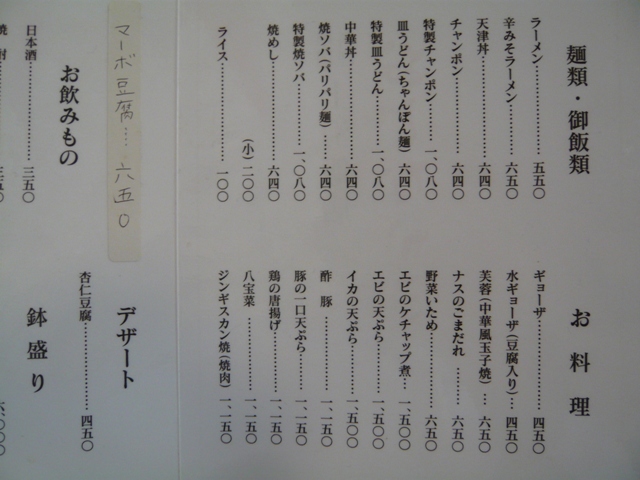 麺類・御飯類
ラーメン………五五〇
辛みそラーメン………六五〇
天津丼………六四〇
チャンポン………六四〇
特製チャンポン………一、〇八〇
皿うどん(ちゃんぽん麺)………六四〇
特製皿うどん………一、〇八〇
中華丼………六四〇
焼ソバ(パリパリ麺)………六四〇
特製焼ソバ………一、〇八〇
焼めし………六四〇
(小)二〇〇
ライス………一〇〇
お料理
ギョーザ………四五〇
水ギョーザ(豆腐入り)…四五〇
芙蓉(中華風玉子焼)…六五〇
ナスのごまだれ………四五〇
野菜いため………六五〇
エビのケチャップ煮…一、五〇〇
エビの天ぷら………一、五〇〇
イカの天ぷら………一、五〇〇
酢豚………一、一五〇
豚の一口天ぷら………一、一五〇
鶏の唐揚げ………一、一五〇
八宝菜………一、一五〇
ジンギスカン焼(焼肉)一、一五〇
マーボ豆腐…六五〇
デザート
杏仁豆腐………四五〇
お飲みもの
日本酒………三五〇
焼酎………三五〇
鉢盛り
六、〇〇〇